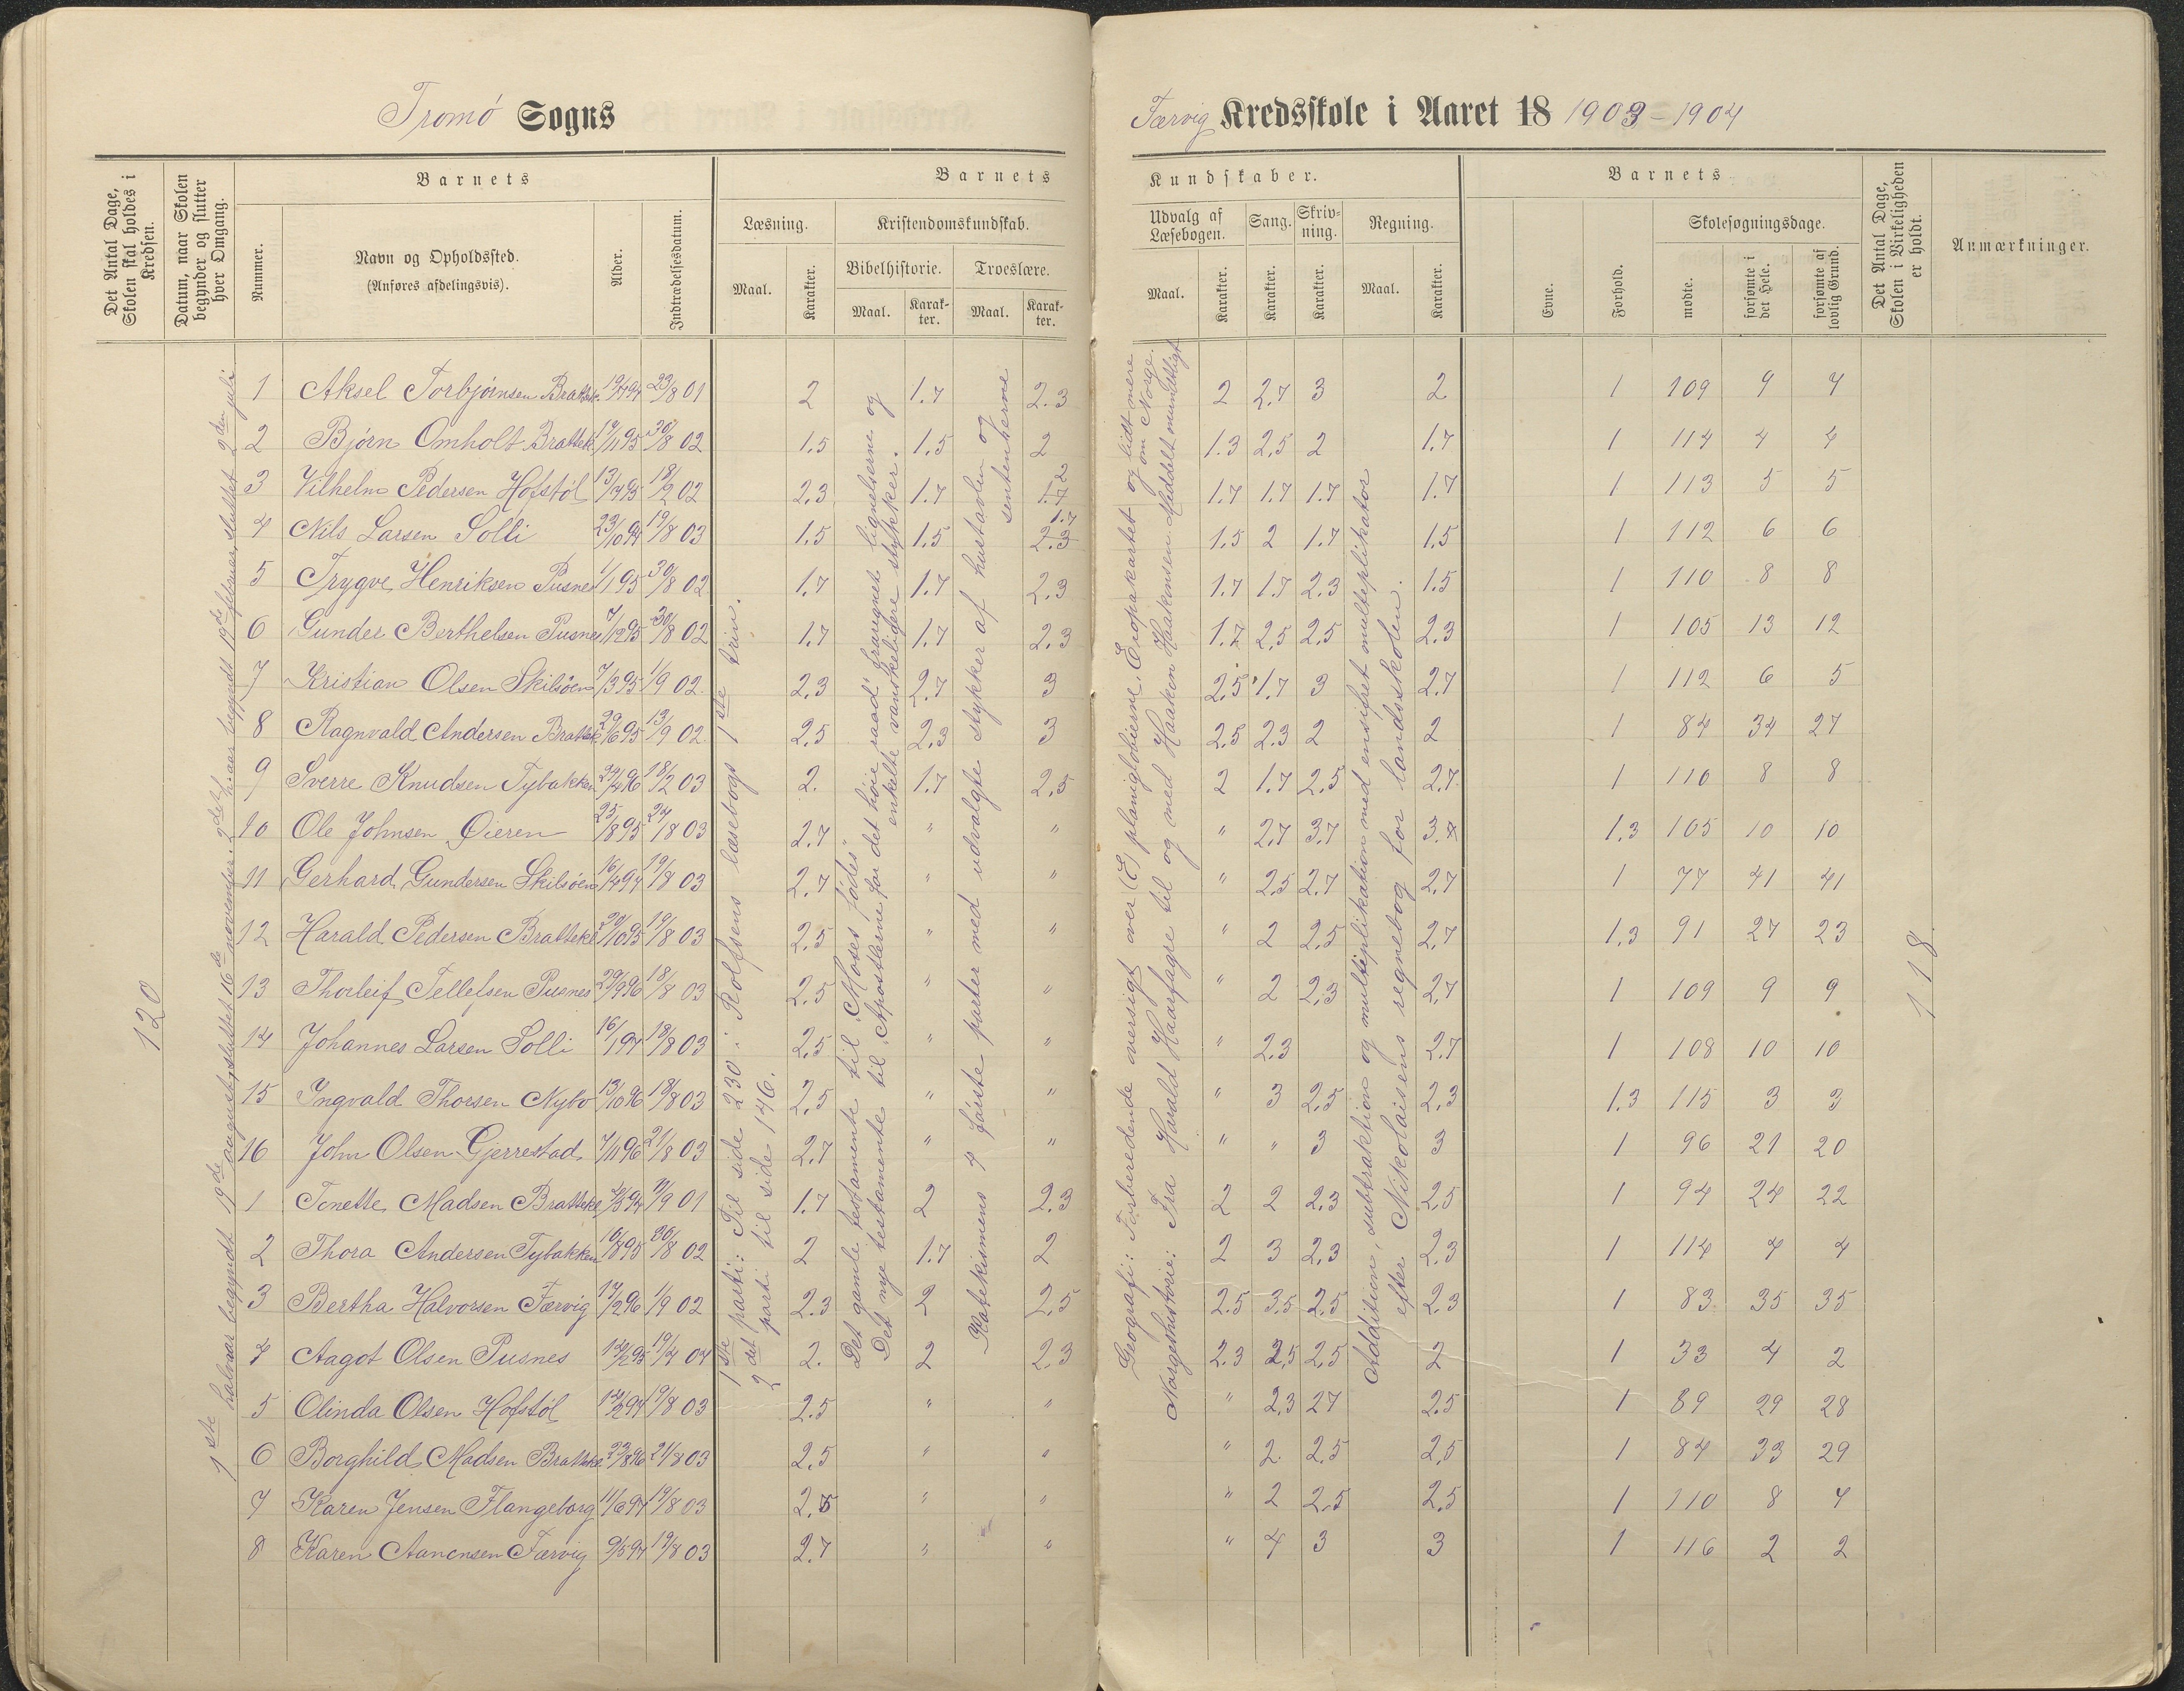 Tromö Sogns
Færvig Kredsskole i Aaret 18 1903-1904
Det Antal Dage, Skolen skal holdes i Kredsen.
Datum, naar Skolen begynder og slutter hver Omgang.
Barnets
Nummer.
Navn og Opholdssted.
(Anføres afdelingsvis).
Alder.
Indtrædelsesdatum.
Barnets
Læsning.
Maal.
Karakter.
Kristendomskundskab.
Bibelhistorie.
Maal.
Karak-
ter.
Troeslære.
Maal.
Karak-
ter.
Kundskaber.
Udvalg af
Læsebogen.
Maal.
Karakter.
Sang.
Karakter.
Skriv-
ning.
Karakter.
Regning.
Maal.
Karakter.
Barnets
Evne.
Forhold.
Skolesøgningsdage.
mødte.
forsømte i
det Hele.
forsømte af
lovlig Grund.
Det Antal Dage,
Skolen i Virkeligheden
er holdt.
Anmærkninger.
120
1ste halvaar begyndt 19de august, sluttet 16de november. 2det halvaar begyndt 19de februar, sluttet 2den juli
1ste parti: Til side 230 i Rolfsens læsebogs 1ste trin.
2det parti til side 146.
Det gamle testamente til "Moses fødes"
Det nye testamente til "Apostlerne for det høie raad" fraregnet lignelserne og
enkelte vanskeligere stykker.
Katekismens 4 første parter med udvalgte stykker af hustavlen og
sentenserne
Geografi: Forberedende oversigt over (E) planigloberne, Europakartet og lidt mere
om Norge.
Norgeshistorie: Fra Harald Haarfagre til og med Haakon Haakonsen. Meddelt mundtligt
Addition, subtraktion og multiplikation med ensifret multiplikator
efter Nikolaisens regnebog for landsskolen.
118
1 Aksel Torbjørnsen Brattek. 19/4 94 23/8 01 2 1.7 2.3 2 2,7 3 2 1 109 9 7
2 Bjørn Omholt Brattek. 19/11 95 30/8 02 1.5 1.5 2 1.3 2,5 2 1.7 1 114 4 4
3 Vilhelm Pedersen Hofstöl 13/4 95 18/2 02 2,3 1.7 1.7 2 1.7 1.7 1.7 1.7 1 113 5 5
4 Nils Larsen Solli 23/10 94 19/8 03 1.5 1.5 2.3 1.7 1.5 2 1.7 1.5 1 112 6 6
5 Trygve Henriksen Pusnes 1/1 95 30/8 02 1.7 1.7 2.3 1.7 1.7 2.3 1.5 1 110 8 8
6 Gunder Berthelsen Pusnes 7/12 95 30/8 02 1.7 1.7 2.3 1.7 2,5 2,5 2.3 1 105 13 12
7 Kristian Olsen Skilsöen 7/3 95 1/9 02 2.3 2.7 3 2.5 1.7 3 2.7 1 112 6 5
8 Ragnvald Andersen Brattek. 29/6 95 13/9 02 2.5 2.3 3 2.5 2.3 2 2 1 84 34 27
9 Sverre Knudsen Tybakken 29/4 96 18/2 03 2. 1.7 2,5 2 1.7 2,5 2.7 1 110 8 8
10 Ole Johnsen Øieren 25/8 95 24/8 03 2.7 " " " 2,7 3,7 3.7 1.3 105 10 10
11 Gerhard Gundersen Skilsöen 16/4 94 19/8 03 2.7 " " " 2.5 2.7 2,7 1 77 41 41
12 Harald Pedersen Brattekl 20/10 95 19/8 03 2.5 " " " 2 2,5 2,7 1.3 91 27 23
13 Thorleif Tellefsen Pusnes 29/9 96 18/8 03 2.5 " " " 2 2,3 2,7 1 109 9 9
14 Johannes Larsen Solli 16/1 97 18/8 03 2.5 " " " 2.3 2.7 1 108 10 10
15 Ingvald Thorsen Nybo 13/10 96 18/8 03 2,5 " " " 3 2,5 2,3 1.3 115 3 3
16 John Olsen Gjerrestad 7/11 96 21/8 03 2.7 " " " " 3 3 1 96 21 20
1 Tonette Madsen Brattekl 94 2/9 01 1.7 2 2.3 2 2 2.3 2,5 1 94 24 22
2 Thora Andersen Tybakken 10/8 95 30/8 02 2 1.7 2 2 3 2,3 2,3 1 114 4 4
3 Bertha Halvorsen Færvig 17/2 96 1/9 02 2.3 2 2.5 2.5 3.5 2,5 2.3 1 83 35 35
4 Aagot Olsen Pusnes 12/2 95 19/4 04 2. 2 2,3 2.3 2,5 2,5 2 1 33 4 2
5 Olinda Olsen Hofstöl 12/2 94 19/8 03 2.5 " " " 2,3 27 2.5 1 89 29 28
6 Borghild Madsen Brattekl. 22/8 96 21/8 03 2,5 " " " 2. 2,5 2,5 1 84 33 29
7 Karen Jensen Flangeborg 11/6 97 19/8 03 2,5 " " " 2 2,5 2,5 1 110 8 4
8 Karen Aanensen Færvig 9/5 97 19/8 03 2.7 " " " 4 3 3 1 116 2 2